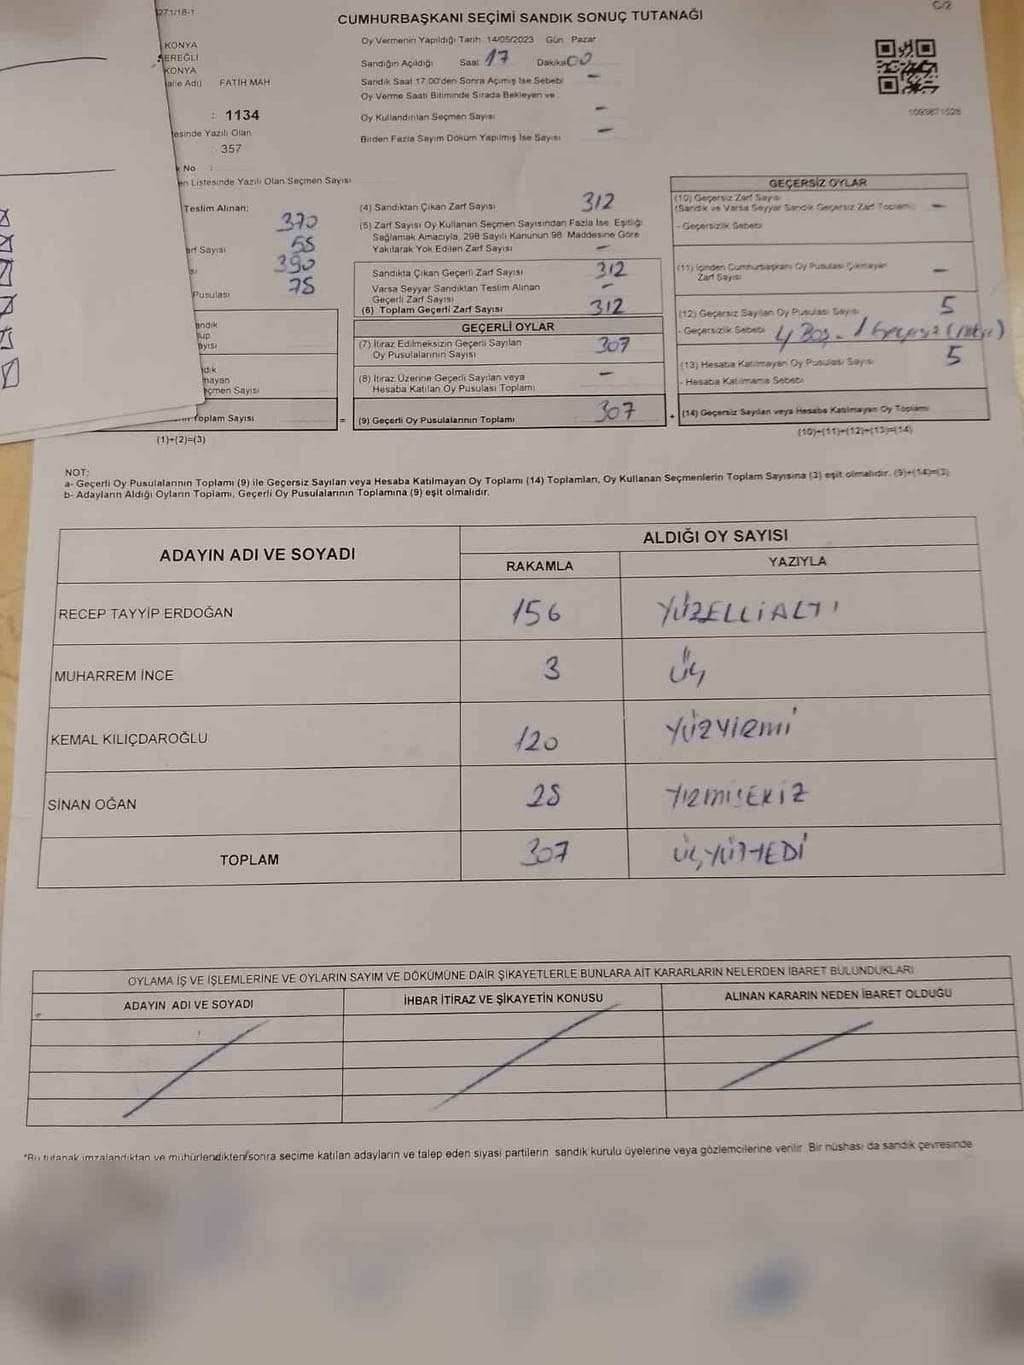 271/18-1
C/2
CUMHURBAŞKANI SEÇİMİ SANDIK SONUÇ TUTANAĞI
KONYA
EREĞLİ
KONYA
alle Adı) FATİH MAH
: 1134
esinde Yazılı Olan
: 357
No :
en Listesinde Yazılı Olan Seçmen Sayısı
Oy Vermenin Yapıldığı Tarih :14/05/2023 Gün: Pazar
Sandığın Açıldığı Saat 17 Dakika 00
Sandık Saat 17:00'den Sonra Açılmış İse Sebebi –
Oy Verme Saati Bitiminde Sırada Bekleyen ve
Oy Kullandırılan Seçmen Sayısı –
Birden Fazla Sayım Döküm Yapılmış İse Sayısı –
1093871528
Teslim Alınan:
370
arf Sayısı 58
390
Pusulası 78
andık
up
ayısı
dık
mayan
eçmen Sayısı
Toplam Sayısı
(1)+(2)=(3)
(4) Sandıktan Çıkan Zarf Sayısı 312
(5) Zarf Sayısı Oy Kullanan Seçmen Sayısından Fazla İse, Eşitliği
Sağlamak Amacıyla, 298 Sayılı Kanunun 98. Maddesine Göre
Yakılarak Yok Edilen Zarf Sayısı –
Sandıkta Çıkan Geçerli Zarf Sayısı 312
Varsa Seyyar Sandıktan Teslim Alınan
Geçerli Zarf Sayısı –
(6) Toplam Geçerli Zarf Sayısı 312
GEÇERLİ OYLAR
(7) İtiraz Edilmeksizin Geçerli Sayılan
Oy Pusulalarının Sayısı 307
(8) İtiraz Üzerine Geçerli Sayılan veya
Hesaba Katılan Oy Pusulası Toplamı –
= (9) Geçerli Oy Pusulalarının Toplamı 307
GEÇERSİZ OYLAR
(10) Geçersiz Zarf Sayısı
(Sandık ve Varsa Seyyar Sandık Geçersiz Zarf Toplamı) –
- Geçersizlik Sebebi
(11) İçinden Cumhurbaşkanı Oy Pusulası Çıkmayan
Zarf Sayısı –
(12) Geçersiz Sayılan Oy Pusulası Sayısı 5
- Geçersizlik Sebebi 4 Boş - 1 Geçersiz
(13) Hesaba Katılmayan Oy Pusulası Sayısı 5
- Hesaba Katılmama Sebebi
+ (14) Geçersiz Sayılan veya Hesaba Katılmayan Oy Toplamı
(10)+(11)+(12)+(13)=(14)
NOT:
a- Geçerli Oy Pusulalarının Toplamı (9) ile Geçersiz Sayılan veya Hesaba Katılmayan Oy Toplamı (14) Toplamları, Oy Kullanan Seçmenlerin Toplam Sayısına (3) eşit olmalıdır. (9)+(14)=(3)
b- Adayların Aldığı Oyların Toplamı, Geçerli Oy Pusulalarının Toplamına (9) eşit olmalıdır.
ADAYIN ADI VE SOYADI ALDIĞI OY SAYISI
RAKAMLA YAZIYLA
RECEP TAYYİP ERDOĞAN 156 YÜZELLİALTI
MUHARREM İNCE 3 Üç
KEMAL KILIÇDAROĞLU 120 YÜZYİRMİ
SİNAN OĞAN 28 YİRMİSEKİZ
TOPLAM 307 ÜÇYÜZYEDİ
OYLAMA İŞ VE İŞLEMLERİNE VE OYLARIN SAYIM VE DÖKÜMÜNE DAİR ŞİKAYETLERLE BUNLARA AİT KARARLARIN NELERDEN İBARET BULUNDUKLARI
ADAYIN ADI VE SOYADI İHBAR İTİRAZ VE ŞİKAYETİN KONUSU ALINAN KARARIN NEDEN İBARET OLDUĞU
*Bu tutanak imzalandıktan ve mühürlendikten sonra seçime katılan adayların ve talep eden siyasi partilerin sandık kurulu üyelerine veya gözlemcilerine verilir. Bir nüshası da sandık çevresinde